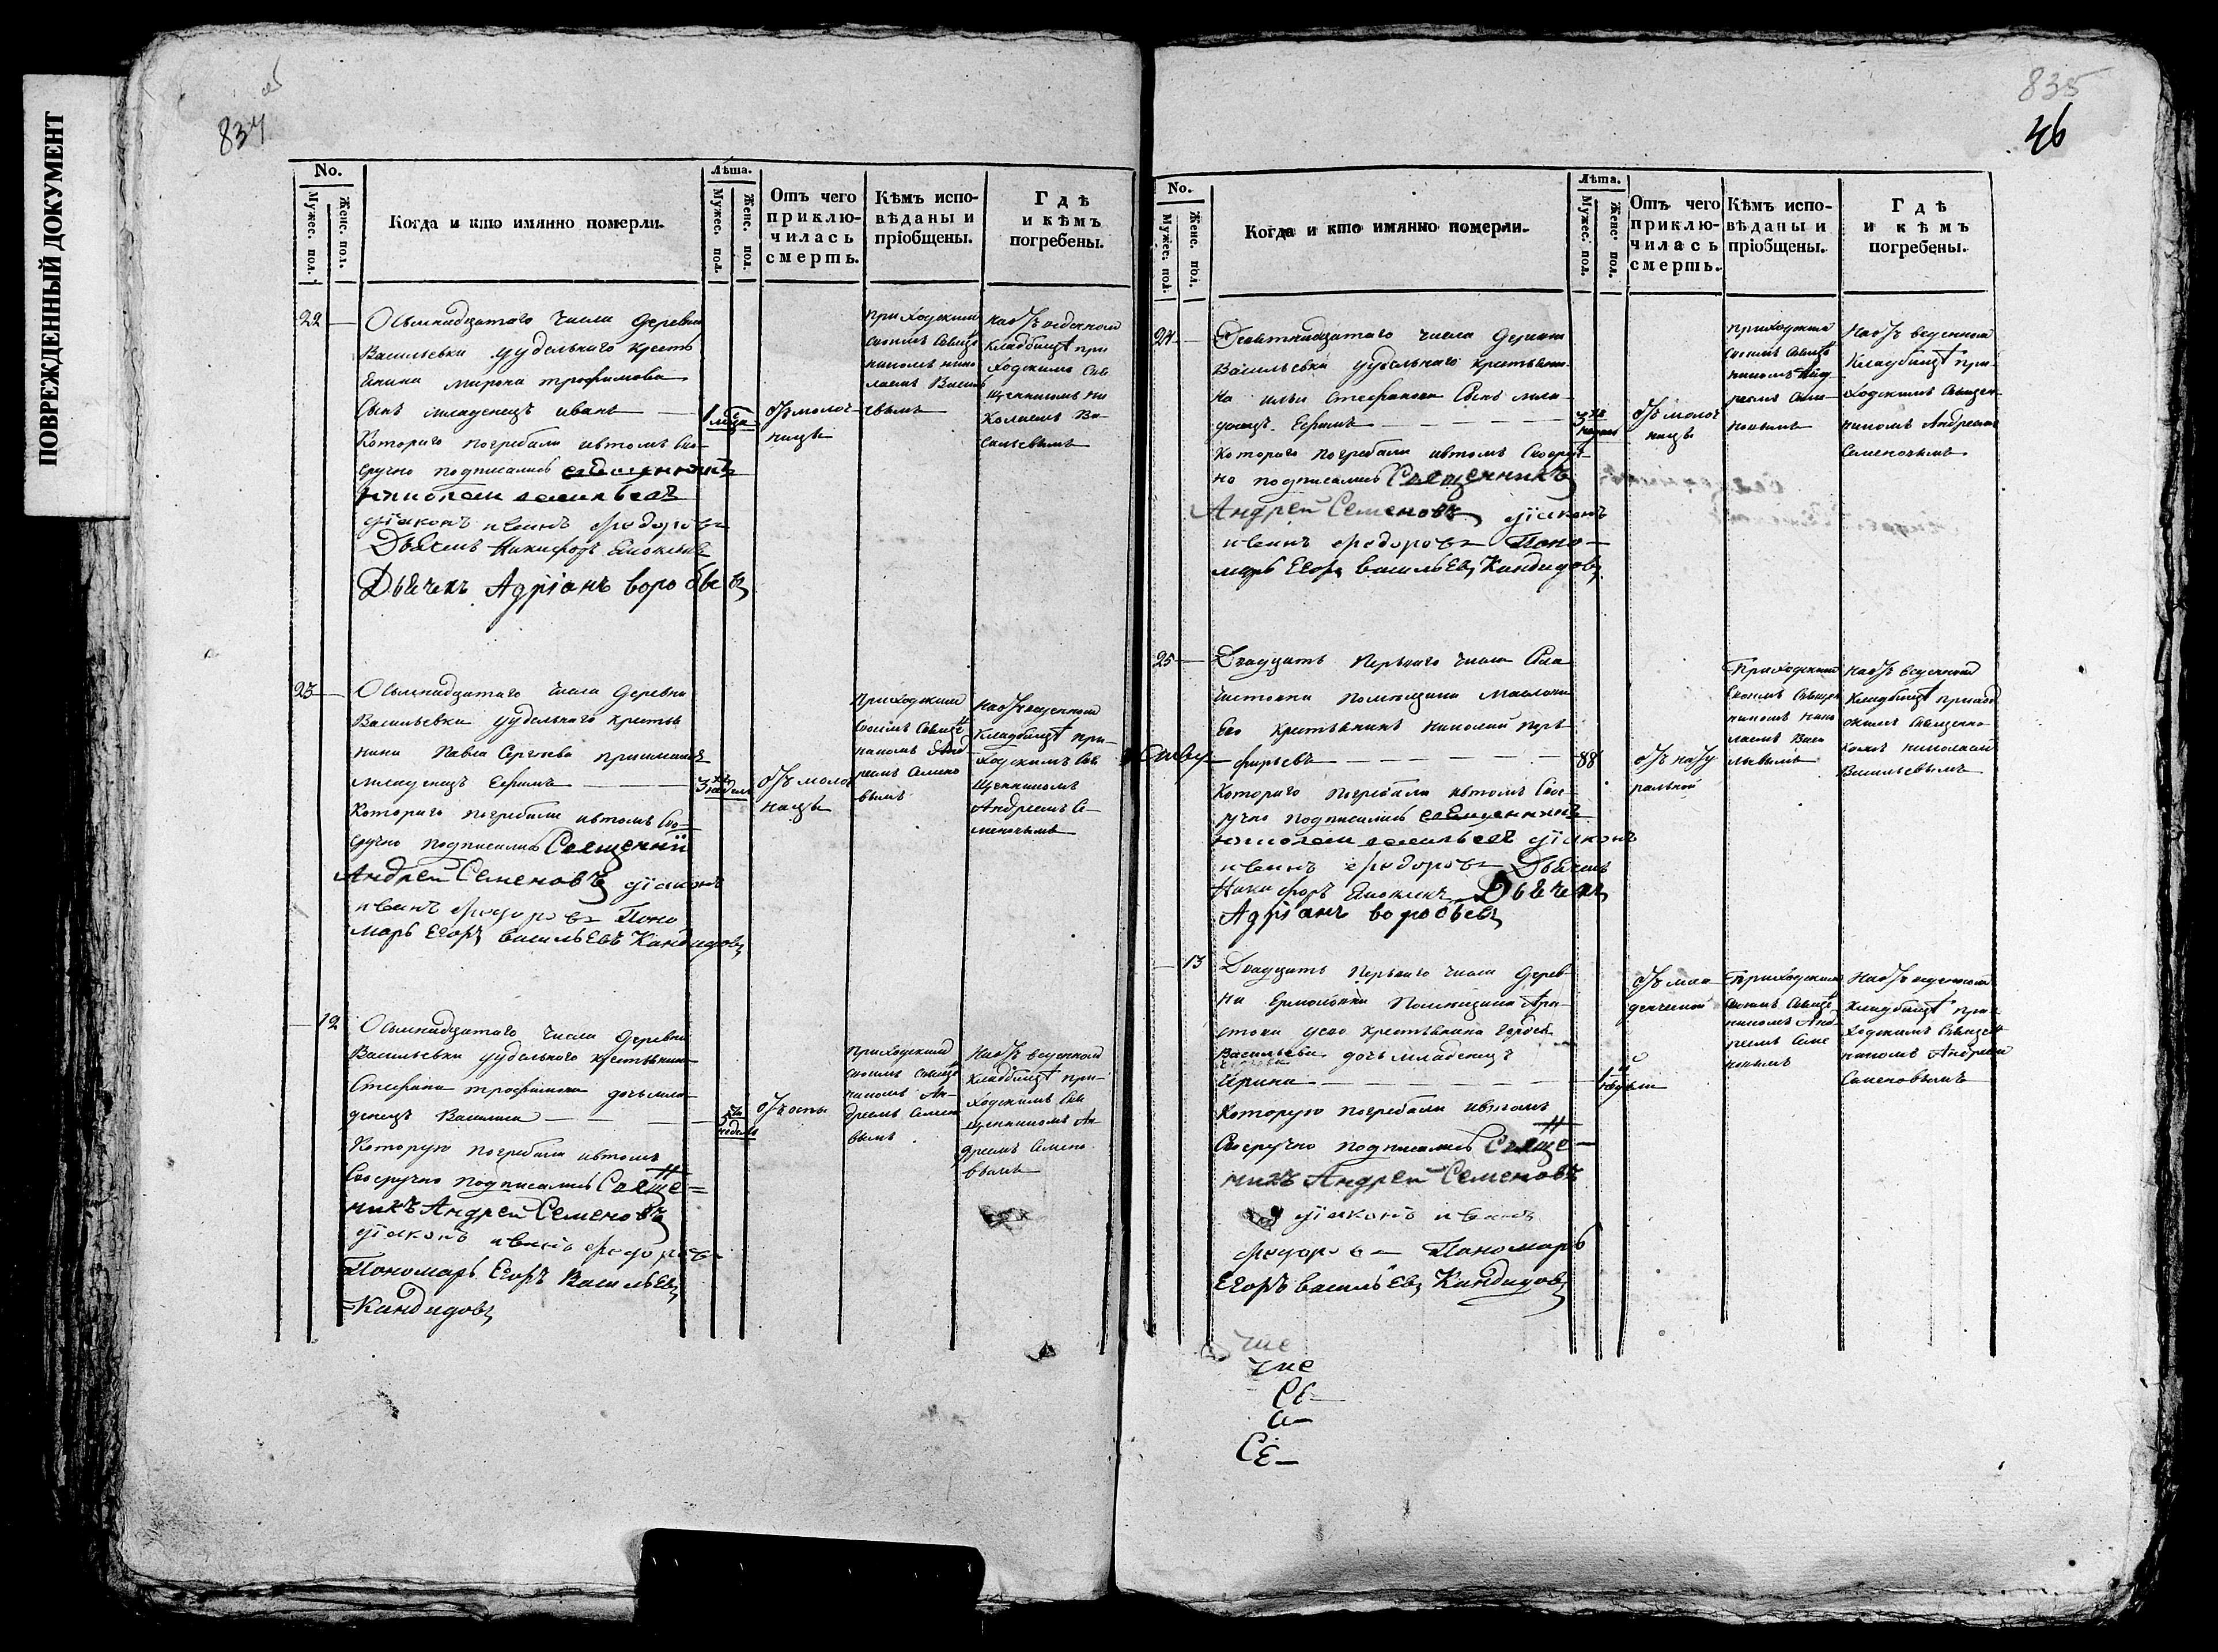 ПОВРЕЖДЕННЫЙ ДОКУМЕНТ
834
No.
Мужес. пол.
Женс. пол.
Когда и кто имянно померли.
Лѣта.
Мужес. пол.
Женс. пол.
Отъ чего приклю-
чилась
смерть.
Кѣмъ испо-
вѣданы и
пріобщены.
Гдѣ
и кѣмъ
погребены.
22
Осьмнадцатаго числа деревни
Васильевки удѣльнаго кресть
янина Мирона трофимова
Сынъ младенецъ иванъ
Котораго погребали и втомъ Сво
еручно подписались священникъ
николай васильевъ
діаконъ иванъ федоровъ
Дьячекъ Никифоръ
Дьячекъ Адріанъ воробьевъ
1 меца
отъ молот
ницы
приходскимъ
своимъ Священ
никомъ нико
лаемъ Василь
евымъ
на отведенномъ
кладбищѣ при
ходскимъ Свя
щенникомъ Ни
колаемъ Ва-
сильевымъ
23
Осьмнадцатаго числа деревни
Васильевки удѣльнаго кресть
нина Павла Сергѣева
младенецъ Ефимъ
Котораго погребали и втомъ Сво
еручно подписались Священни
Андрей Семеновъ діаконъ
иванъ федоровъ Поно
марь Егоръ васильевъ Кандидовъ
3 недель
отъ молот
ницы
приходскимъ
своимъ Священ
никомъ Анд
реемъ Семено
вымъ
на отведенномъ
кладбищѣ при-
ходскимъ Свя
щенникомъ
Андреемъ Се-
меновымъ
12
Осьмнадцатаго числа деревни
Васильевки удѣльнаго крестьянина
Стефана трофимова дочь мла
денецъ Василиса
Которую погребали и втомъ
Своеручно подписались Свяще=
никъ Андрей Семеновъ
діаконъ иванъ федоровъ
Пономарь Егоръ Васильевъ
Кандидовъ
5 недель
отъ оспы
приходскимъ
своимъ Священ
никомъ Ан-
дреемъ Семено
вымъ
на отведенномъ
кладбищѣ при-
ходскимъ Свя
щенникомъ Ан
дреемъ Семено
вымъ
835
46
No.
Мужес. пол.
Женс. пол.
Когда и кто имянно померли.
Лѣта.
Мужес. пол.
Женс. пол.
Отъ чего
приклю-
чилась
смерть.
Кѣмъ испо-
вѣданы и
пріобщены.
Гдѣ
и кѣмъ
погребены.
24
числа деревни
Васильевки удѣльнаго крестьяни-
на ильи Стефанова Сынъ мла-
денецъ Ефимъ
Котораго погребали и втомъ Своеруч-
но подписались Священникъ
Андрей Семеновъ діаконъ
иванъ федоровъ Поно-
марь Егоръ васильевъ Кандидовъ
3
отъ молот
ницы
приходскимъ
своимъ Священ
никомъ Анд
реемъ Семе-
новымъ
на отведенномъ
кладбищѣ при-
ходскимъ Священ-
никомъ Андреемъ
Семеновымъ
25
Двадцать перваго числа Села
помещика Маслова
Его крестьянинъ николай Пор
фирьевъ
Котораго погребали и втомъ Свое
ручно подписались священникъ
николай васильевъ діаконъ
иванъ федоровъ Дьячекъ
Никифоръ Дьячекъ
Адріанъ воробьевъ
88
отъ нату
ральной
приходскимъ
своимъ Священ
никомъ нико
лаемъ Васи
льевымъ
на отведенномъ
кладбищѣ приход
скимъ священни
комъ николаемъ
Васильевымъ
13
Двадцать перваго числа дерев
ни Ермоловки помещика
крестьянина
Васильева дочь младенецъ
Ирина
Которую погребали и втомъ
Своеручно подписались Свяще-
никъ Андрей Семеновъ
діаконъ иванъ
федоровъ Пономарь
Егоръ васильевъ Кандидовъ
1
отъ мла
денческой
приходскимъ
своимъ Священ
никомъ Анд
реемъ Семе
новымъ
на отведенномъ
кладбищѣ при-
ходскимъ Священ
никомъ Андреемъ
Семеновымъ